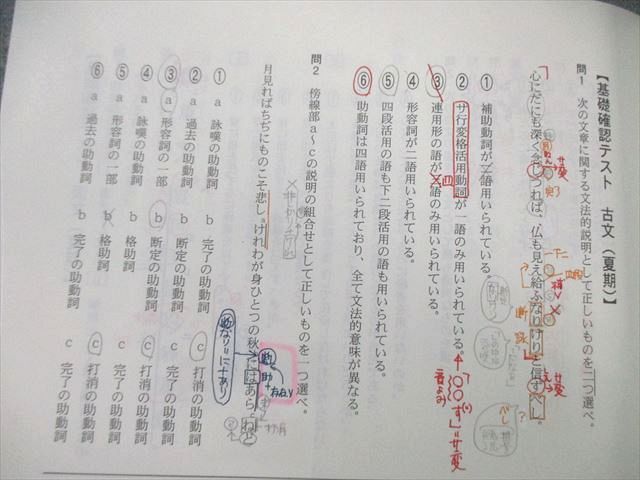 【基礎確認テスト 古文（夏期）】
問1 次の文章に関する文法的説明として正しいものを二つ選べ。
心にだにも深く念じつれば、仏も見え給ふなりけりと信ずべし。
① 補助動詞が二語用いられている。
② サ行変格活用動詞が一語のみ用いられている。
③ 連用形の語が 語のみ用いられている。
④ 形容詞が二語用いられている。
⑤ 四段活用の語も下二段活用の語も用いられている。
⑥ 助動詞は四語用いられており、全て文法的意味が異なる。
問2 傍線部a～cの説明の組合せとして正しいものを一つ選べ。
月見ればちぢにものこそ悲しけれわが身ひとつの秋にはあらねど
① a 詠嘆の助動詞 b 完了の助動詞 c 打消の助動詞
② a 過去の助動詞 b 断定の助動詞 c 完了の助動詞
③ a 形容詞の一部 b 断定の助動詞 c 打消の助動詞
④ a 詠嘆の助動詞 b 断定の助動詞 c 打消の助動詞
⑤ a 形容詞の一部 b 格助詞 c 打消の助動詞
⑥ a 過去の助動詞 b 完了の助動詞 c 完了の助動詞
サ変
サ変
四
断
詠
○○ず」=サ変
音よみ
断なり=に+あり
断
助
打消
べし